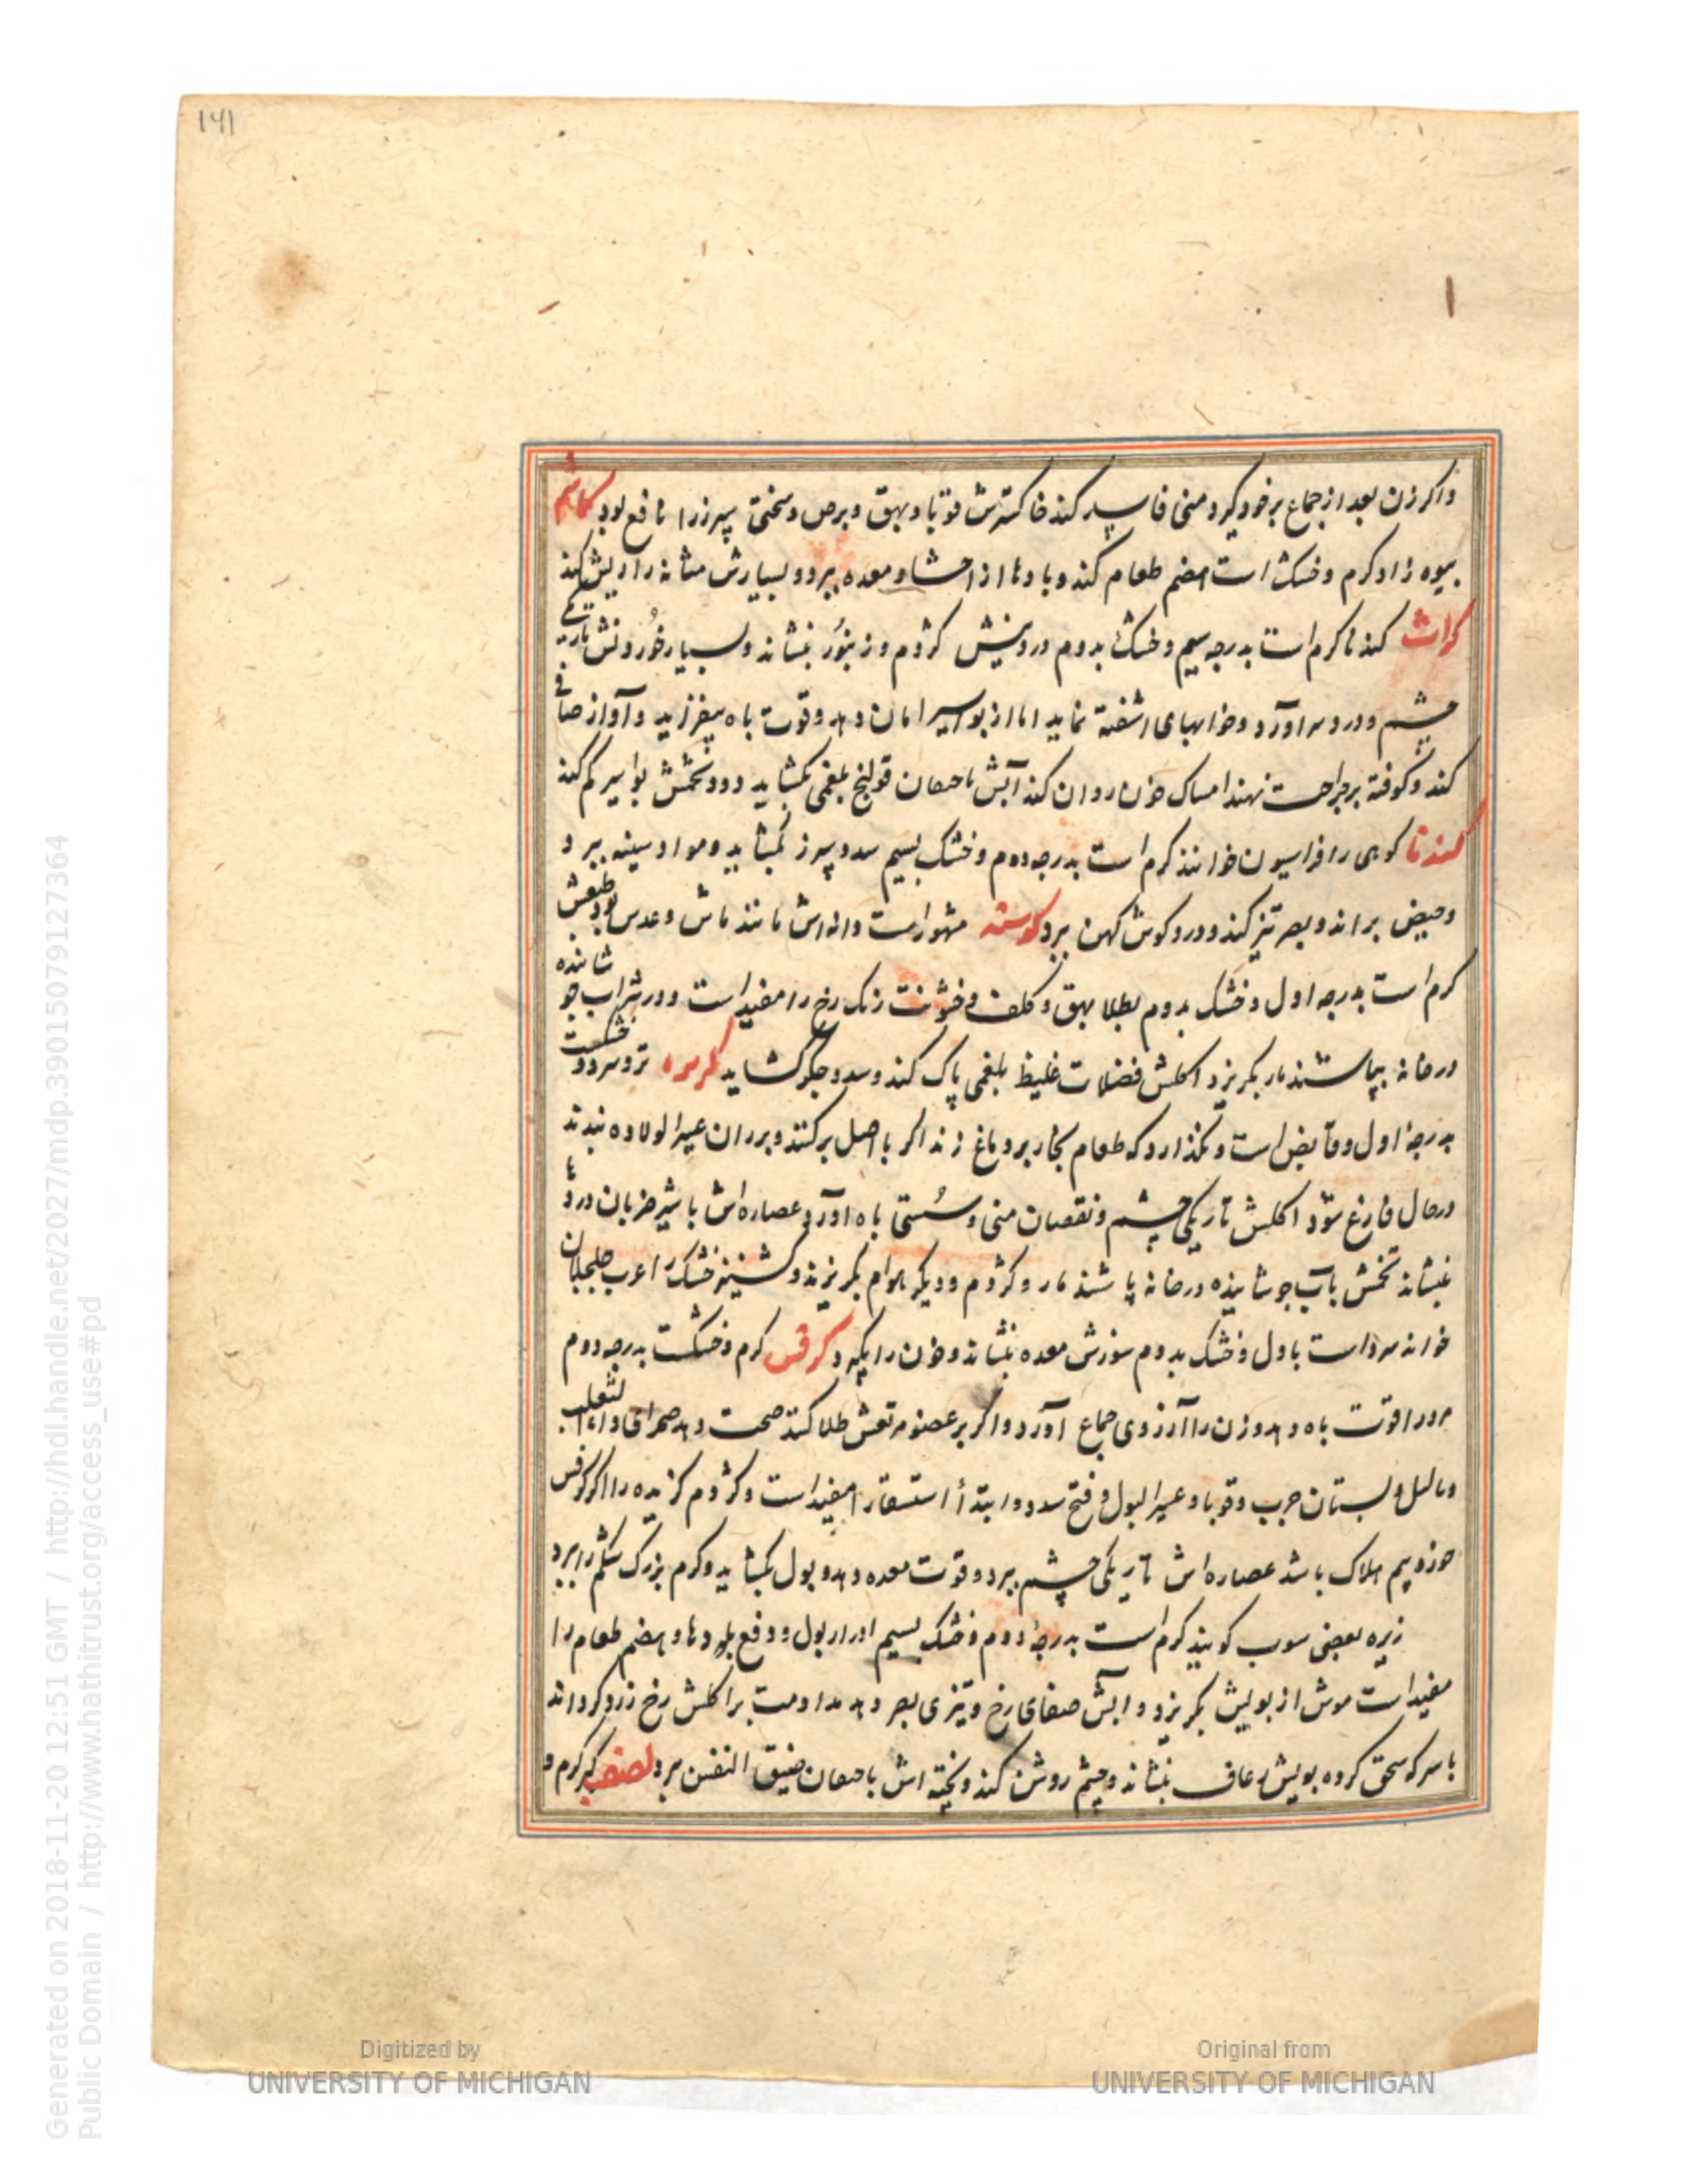 ۱۴۱
واکر زن بعد از جماع بر خود کیرد منی فاسد کند خاکسترش قوبا و بهق و برص و سختی سپرز را نافع بود کاشم
میوه زاد کرم و خشک است هضم طعام کند و بادها از احشا و معده ببرد و بسیارش مثانه را ریش کند
کراث کندنا کرم است بدرجه سیم و خشک بدوم درد نیش کژدم و زنبور بنشاند و بسیار خوردنش تاریکی
چشم و درد سر آورد و خوابهای اشفته نماید اما از بواسیر امان دهد و قوت باه بیفزاید و آواز صافی
کند و کوفته بر جراحت نهند امساک خون روان کند آبش باحتقان قولنج بلغمی بکشاید و دود تخمش بواسیر کم کند
کندنا کوهی را فراسیون خوانند کرم است بدرجه دوم و خشک بسیم سدد سپرز بکشاید و مواد سینه ببرد
و حیض براند و بصر تیز کند و درد کوش کهن ببرد کرسنه مشهور است دانه اش مانند ماش و عدس بود طبعش
کرم است بدرجه اول و خشک بدوم بطلا بهق و کلف و خشونت رنک رخ را مفید است و در شراب جوشانیده
در خانه بپاشند مار بکریزد اکلش فضلات غلیظ بلغمی پاک کند و سدد جکر کشاید کزبره تر و سرد و خشکست
بدرجهٔ اول و قابض است و نکذارد که طعام بخار بر دماغ زند اکر با اصل برکنند و بر ران عسیر الولاده بندند
در حال فارغ شود اکلش تاریکی چشم و نقصان منی و سستی باه آورد عصاره اش با شیر ضربان درد
بنشاند تخمش بآب جوشانیده در خانه پاشند مار و کژدم و دیکر هوام بکریزند و کشنیز خشک را عرب جلجلان
خواند سرد است باول و خشک بدوم سوزش معده بنشاند و خون را بکیرد کرفس کرم و خشکست بدرجه دوم
مرد را قوت باه دهد و زن را آرزوی جماع آورد و اکر بر عضو مرتعش طلا کنند صحت دهد صحرائی داء الثعلب
و ثالیل و بستان جرب و قوبا و عسر البول و فتح سدد و ابتدأ استسقا را مفید است و کژدم کزیده را اکر کرفس
خورد بیم هلاک باشد عصاره اش تاریکی چشم ببرد و قوت معده دهد و بول بکشاید و کرم بزرک شکم را ببرد
زیره بعضی کویند کرم است بدرجهٔ دوم و خشک بسیم ادرار بول و دفع بادها و هضم طعام را
مفید است موش از بویش بکریزد و ابش صفای رخ و تیزی بصر دهد مداومت بر اکلش رخ زرد کرداند
با سرکه سحق کرده بویش رعاف بنشاند و چشم روشن کند و پخته اش باحتقان ضیق النفس ببرد لصف کبر کرم و
Generated on 2018-11-20 12:51 GMT / http://hdl.handle.net/2027/mdp.39015079127364
Public Domain / http://www.hathitrust.org/access_use#pd
Digitized by
UNIVERSITY OF MICHIGAN
Original from
UNIVERSITY OF MICHIGAN